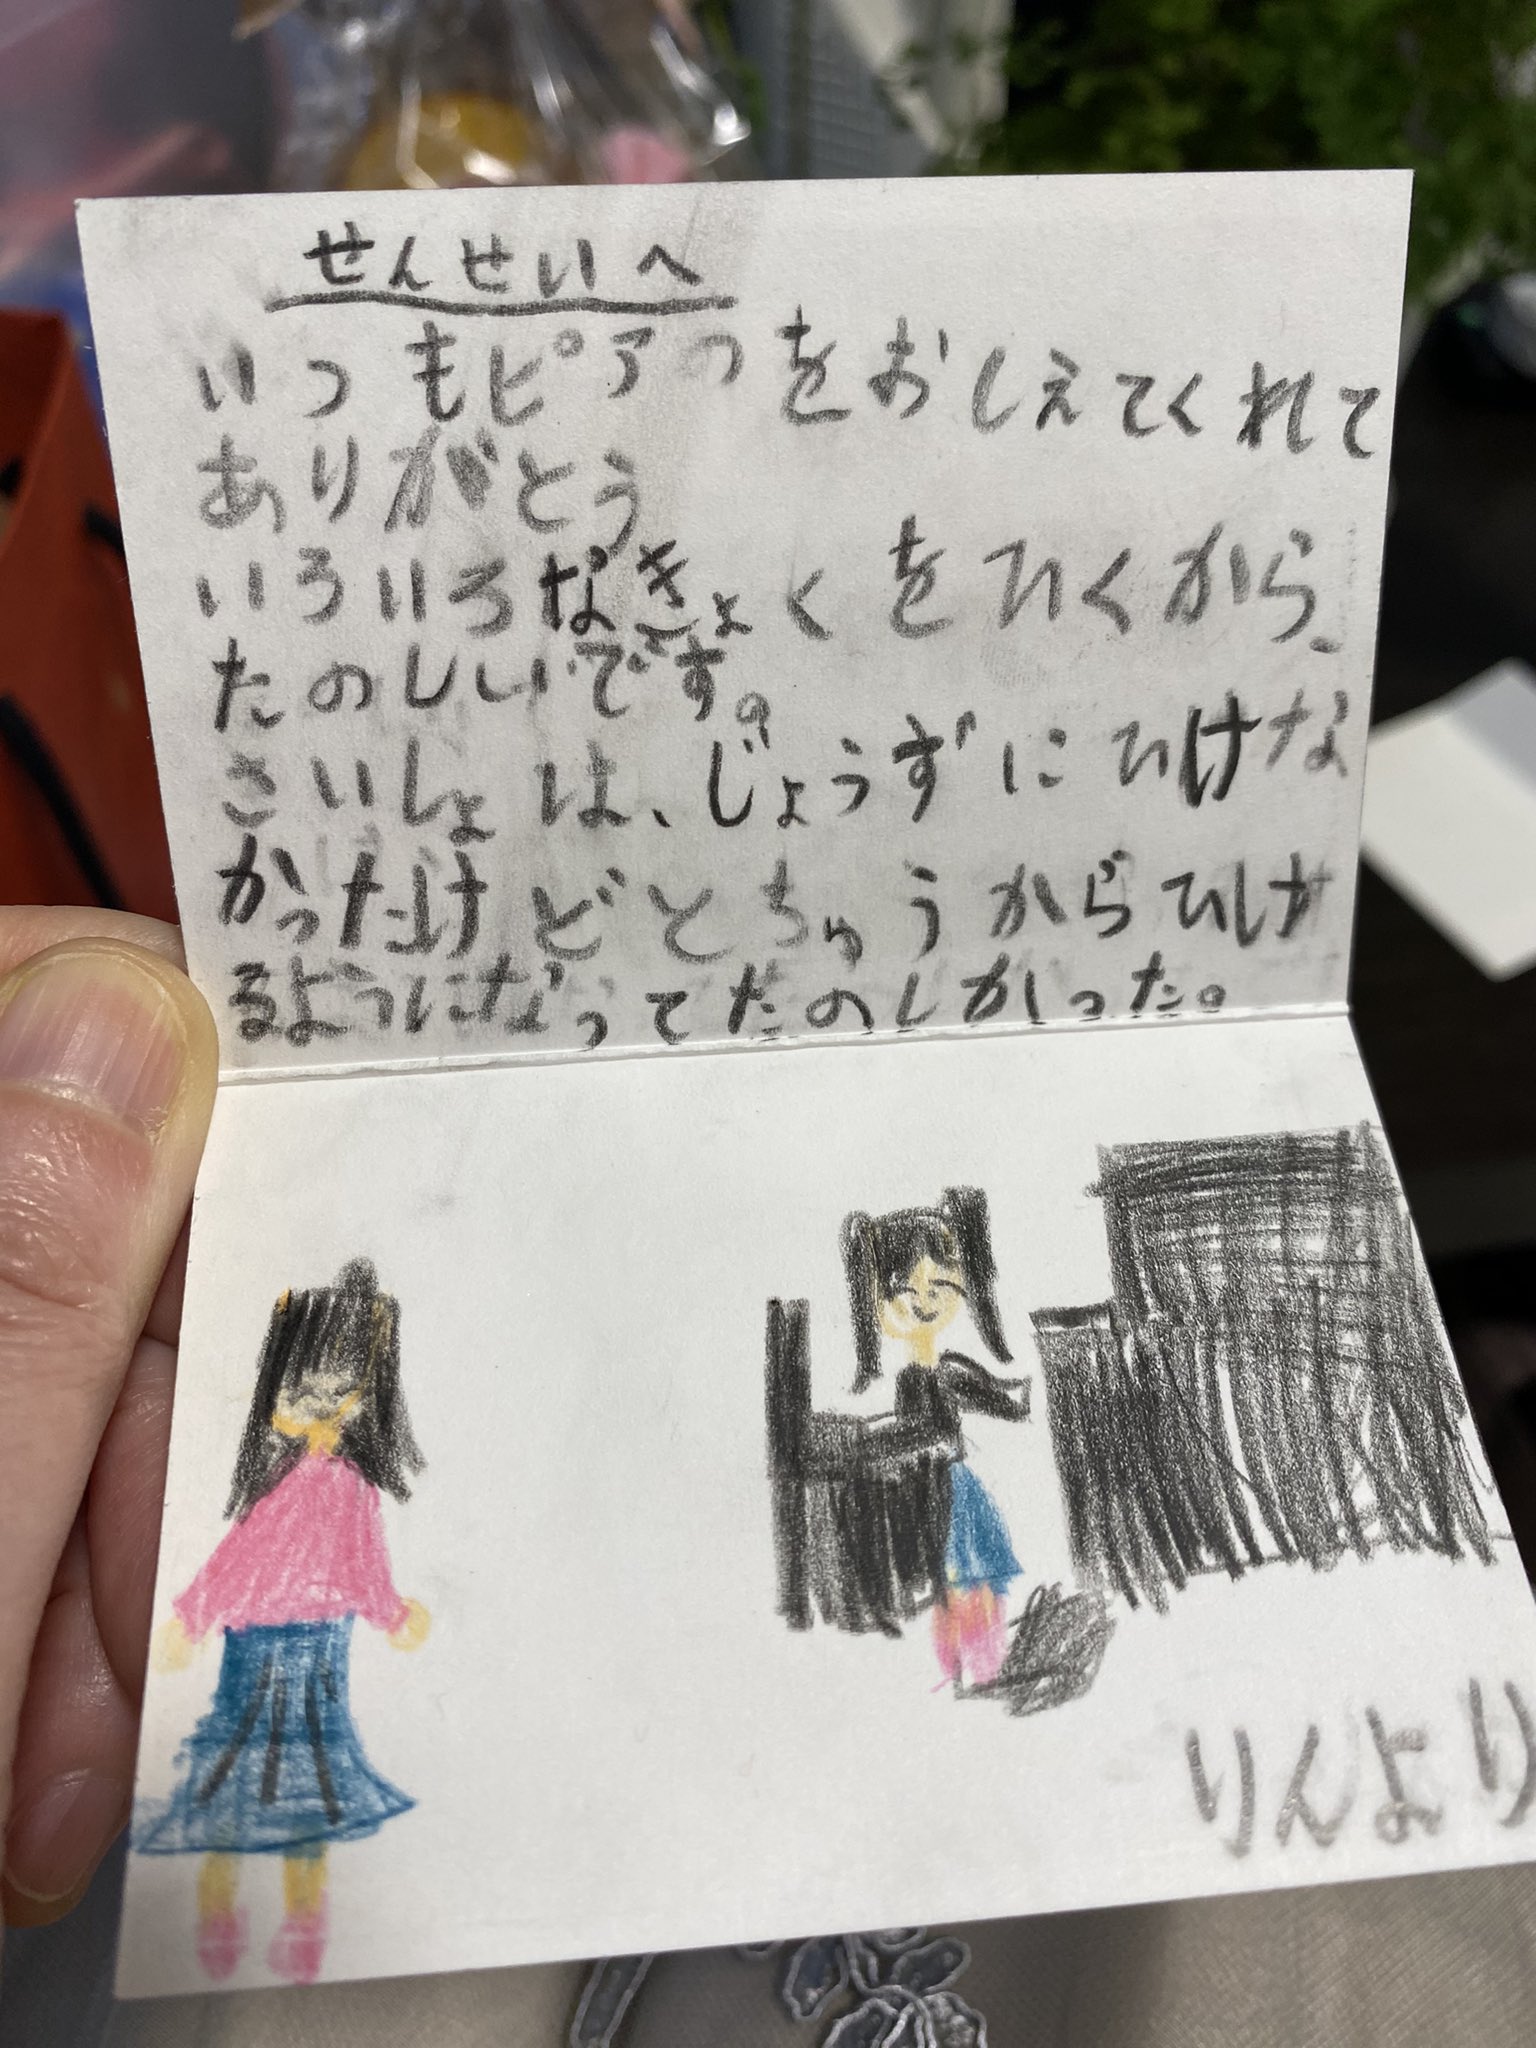 せんせいへ
いつもピアつをおしえてくれて
ありがとう
いろいろなきょくをひくから、
たのしいです。
さいしょは、じょうずにひけな
かっただけどとちゅうからひけ
るようになってたのしかった。
りんより